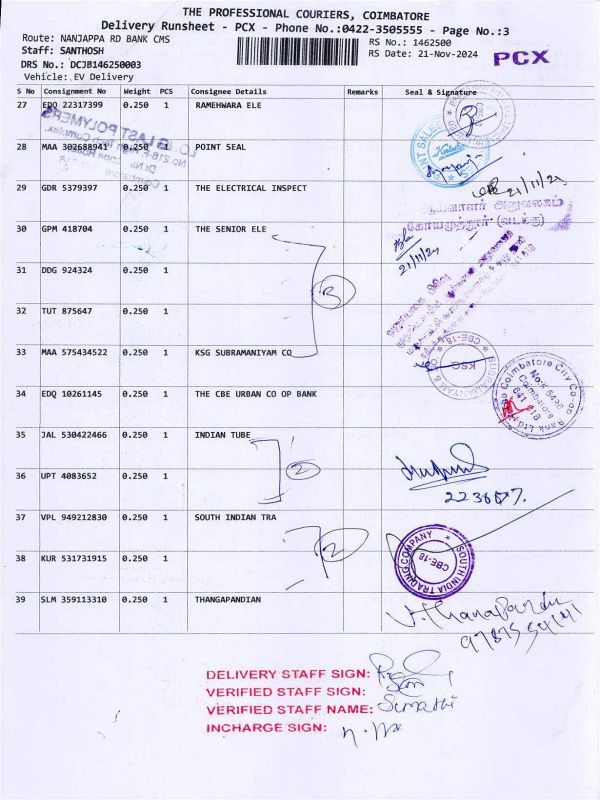 THE PROFESSIONAL COURIERS, COIMBATORE
Delivery Runsheet - PCX - Phone No.:0422-3505555 - Page No.:3
Route: NANJAPPA RD BANK CMS
RS No.: 1462500
Staff: SANTHOSH
RS Date: 21-Nov-2024
PCX
DRS No.: DCJB146250003
Vehicle: EV Delivery
S No Consignment No Weight PCS Consignee Details Remarks Seal & Signature
27 EDQ 22317399 0.250 1 RAMEHWARA ELE
28 MAA 302688941 0.250 1 POINT SEAL
29 GDR 5379397 0.250 1 THE ELECTRICAL INSPECT
21/11/24
30 GPM 418704 0.250 1 THE SENIOR ELE
கோயமுத்தூர் (வடக்கு)
21/11/24
31 DDG 924324 0.250 1
32 TUT 875647 0.250 1
33 MAA 575434522 0.250 1 KSG SUBRAMANIYAM CO
CBE-18
KSG
34 EDQ 10261145 0.250 1 THE CBE URBAN CO OP BANK
Coimbatore City Co-op
Coimbatore
641 018
35 JAL 530422466 0.250 1 INDIAN TUBE
36 UPT 4083652 0.250 1
2
37 VPL 949212830 0.250 1 SOUTH INDIAN TRA
2
38 KUR 531731915 0.250 1
SOUTH INDIA TRADING COMPANY
CBE-18
39 SLM 359113310 0.250 1 THANGAPANDIAN
DELIVERY STAFF SIGN:
VERIFIED STAFF SIGN:
VERIFIED STAFF NAME: Sumathi
INCHARGE SIGN: